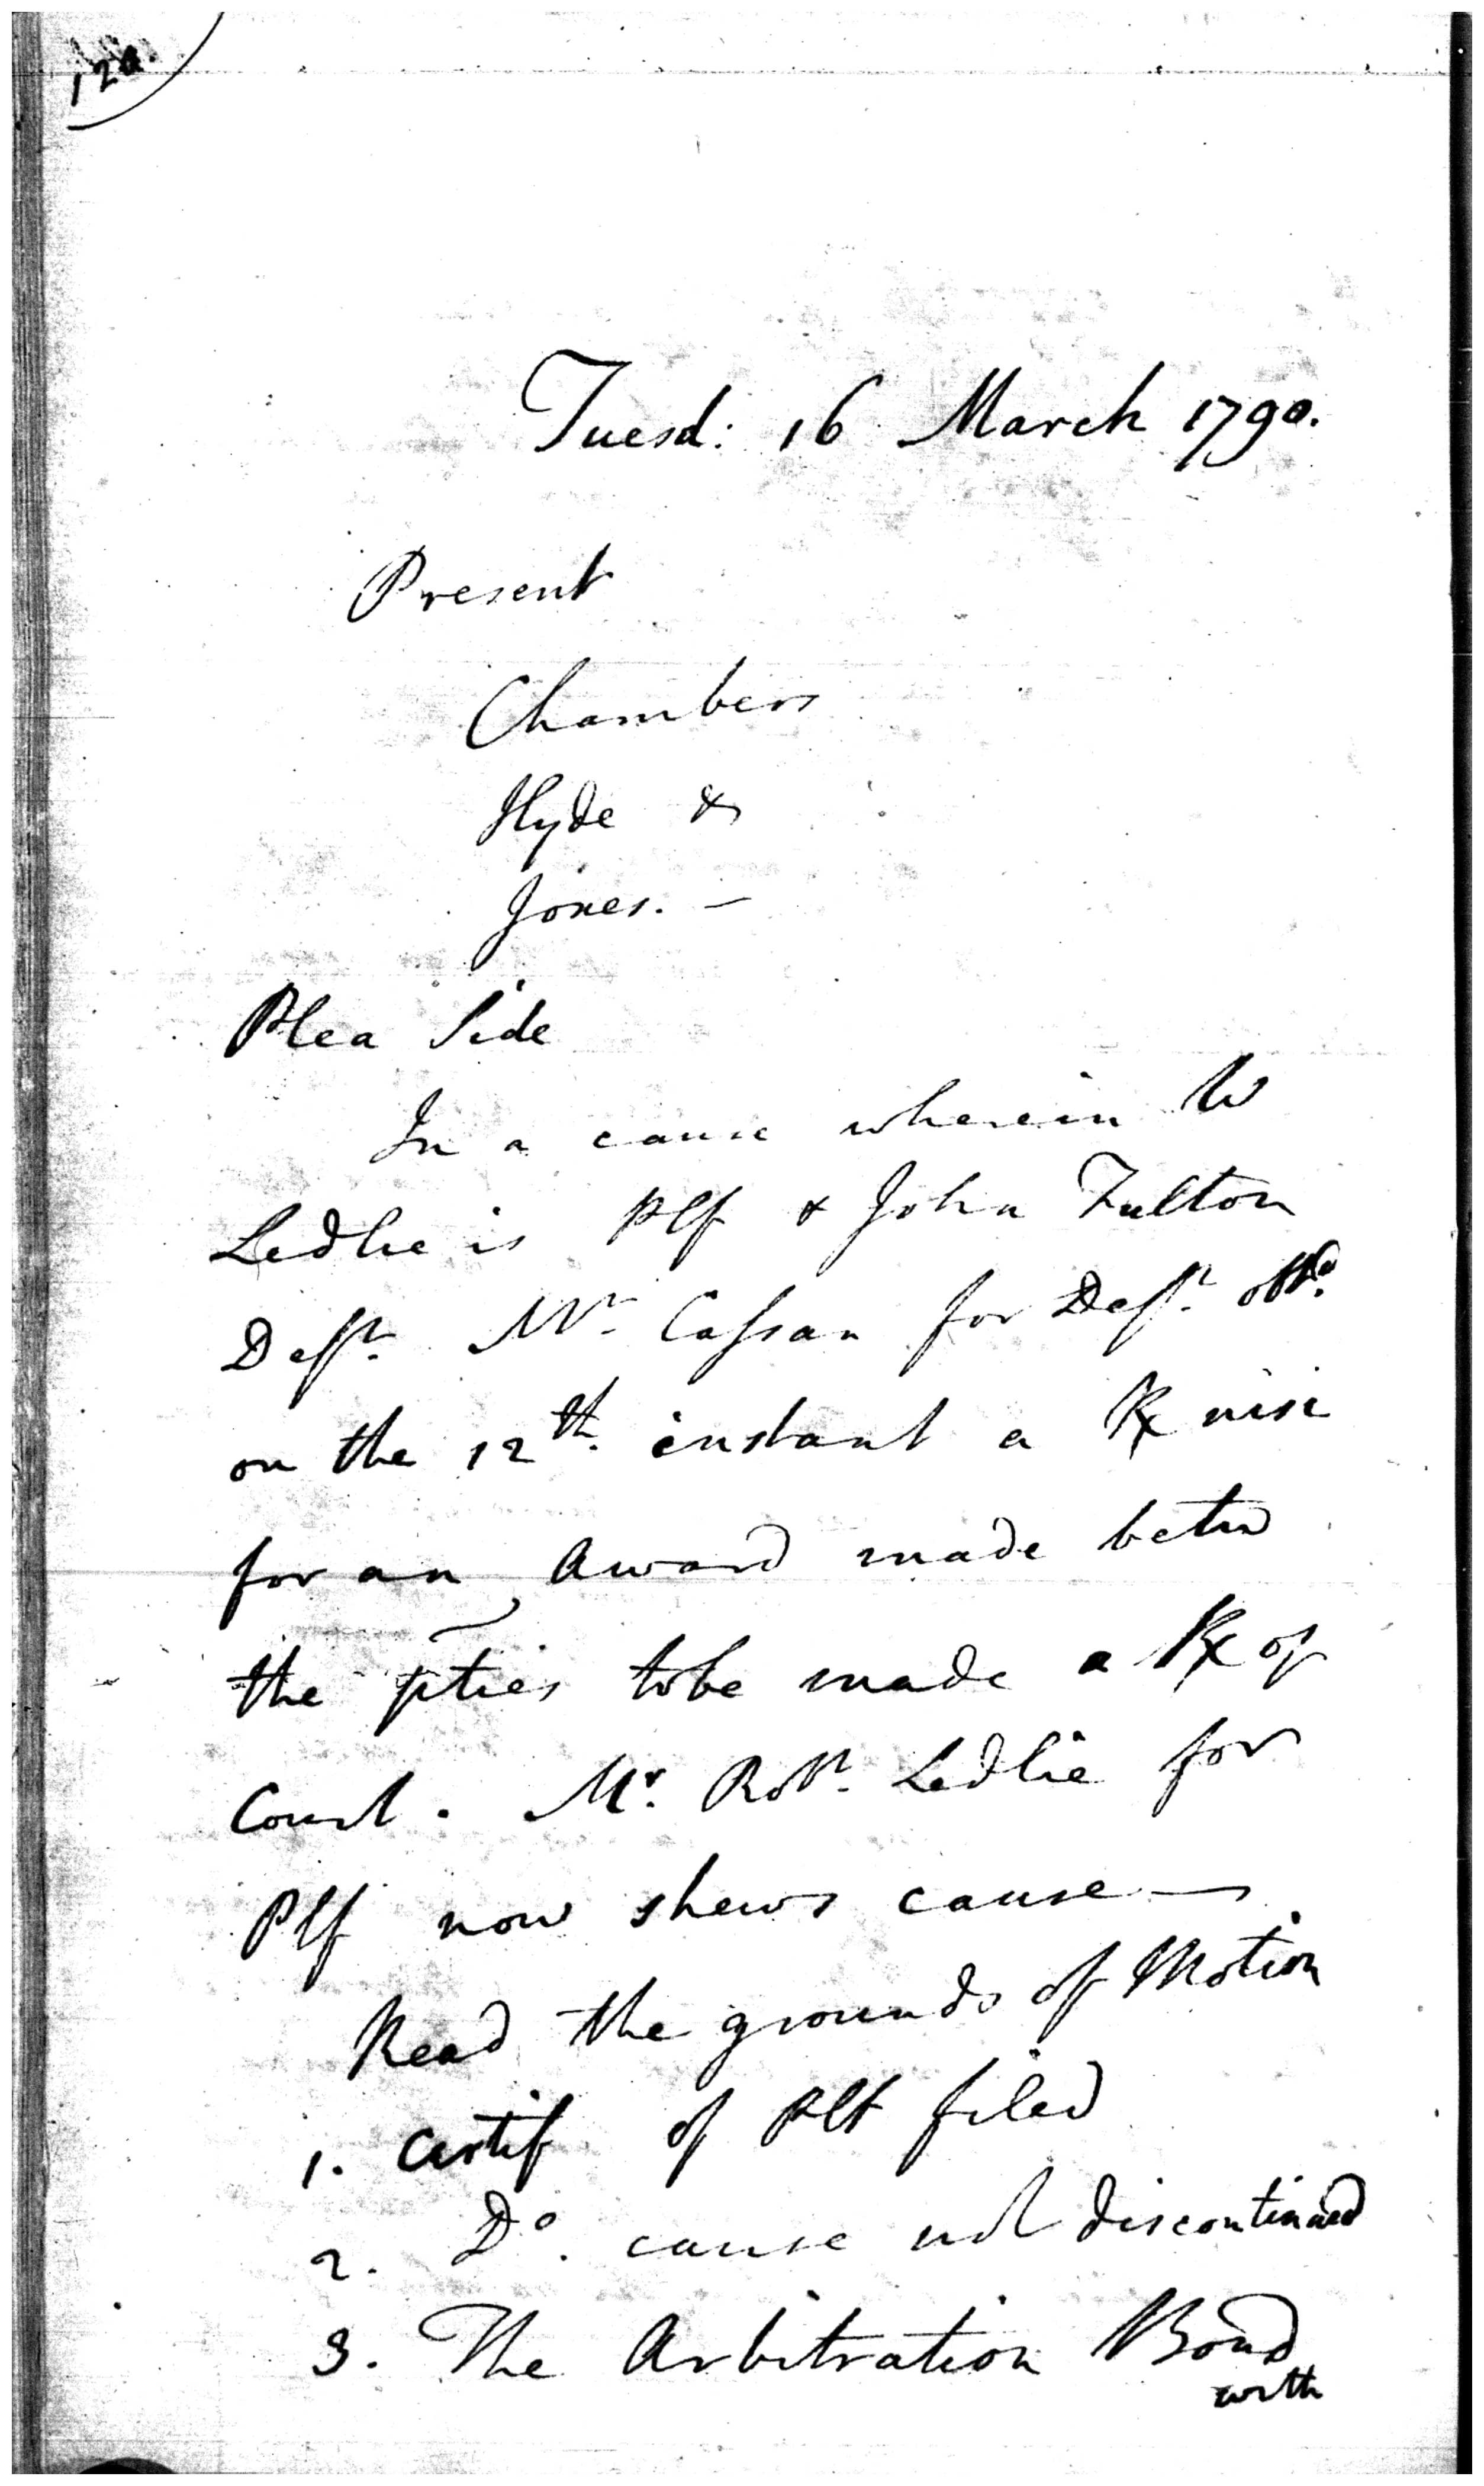 Tuesd: 16 March 1790.
Present
Chambers
Hyde &
Jones. —
Plea Side
In a cause wherein W
Ledlie is Plf & John Fulton
Deft. Mr. Cassan for Deft. obtd.
on the 12th. instant a Rx nisi
for an Award made betw
the pties to be made a Rx of
Court. Mr. Robt. Ledlie for
Plf now shews cause —
Read the grounds of Motion
1. Certif of Plt filed
2. Do. cause not discontinued
3. The Arbitration Bond
with